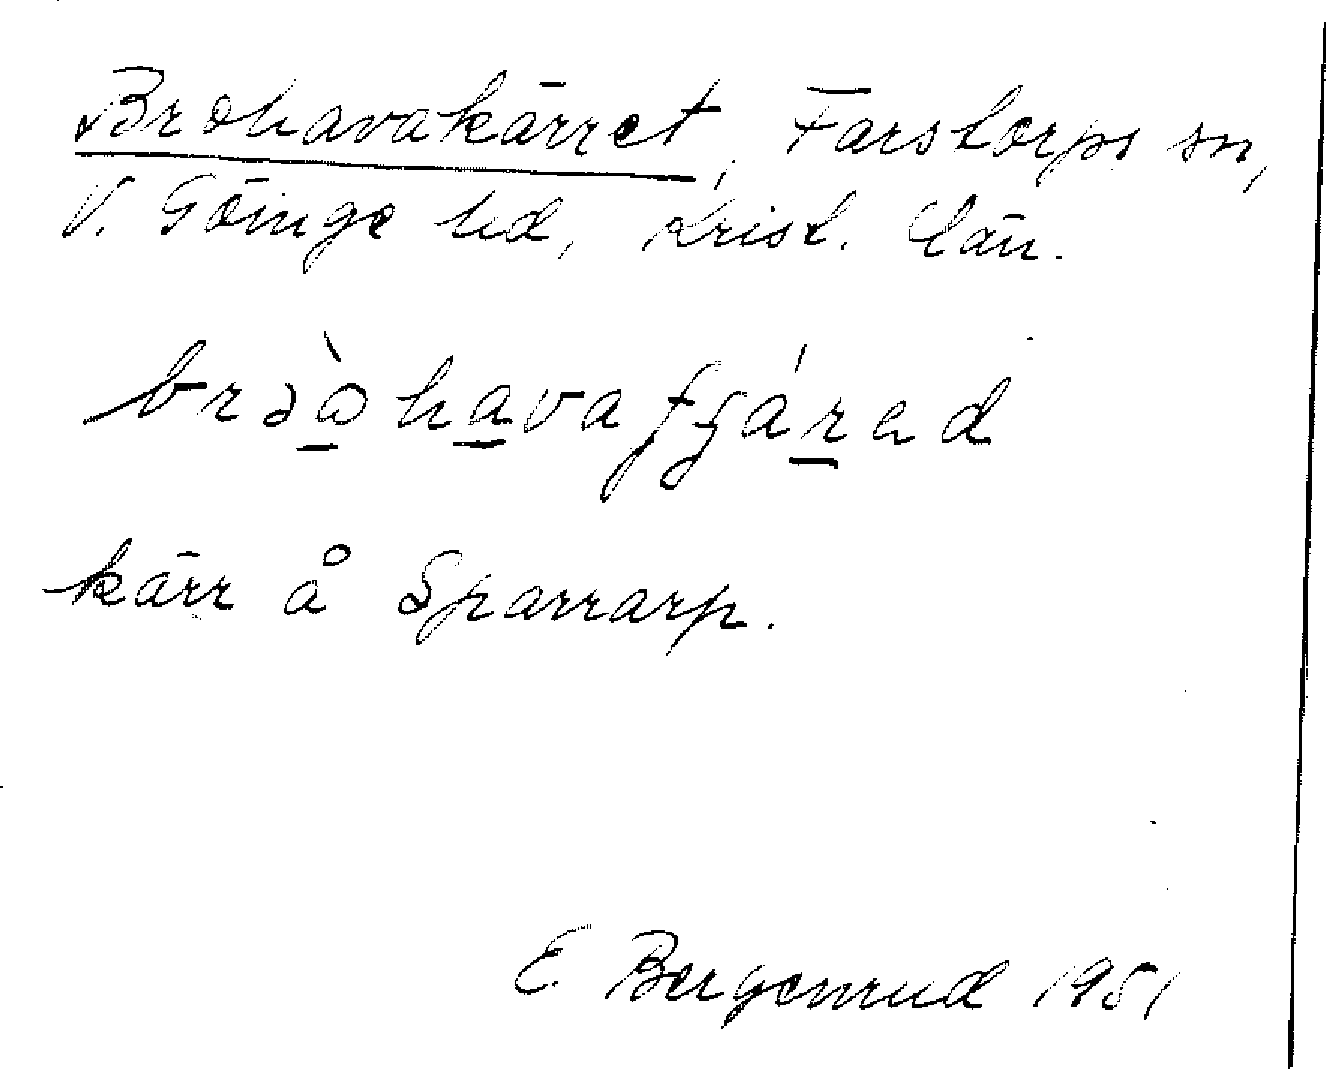 Brohavakärret, Farstorps sn,
V. Göinge hd, Krist. län.
brəòhavafjárad
kärr å Sparrarp.
E. Bergenrud 1951